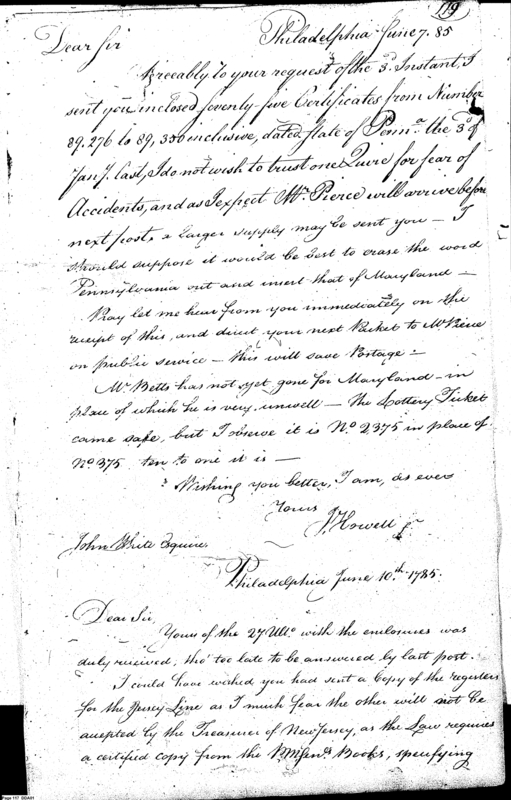 119
Philadelphia June 7. 85
Dear Sir
Agreeably to your request of the 3d. Instant, I
sent you inclosed seventy-five Certificates from Number
89,276 to 89,350 inclusive, dated State of Penna. the 3d of
Jany. last, I do not wish to trust one Quire for fear of
Accidents, and as I expect Mr. Pierce will arrive before
next post, a larger supply may be sent you — I
should suppose it would be best to erase the word
Pennsylvania out and insert that of Maryland —
Pray let me hear from you immediately on the
receipt of this, and direct your next Packet to Mr. Pierce
on public service — this will save Postage —
Mr. Betts has not yet gone for Maryland — in
place of which he is very unwell — The Lottery Ticket
came safe, but I observe it is No. 2,375 in place of
No. 375 ten to one it is —
Wishing you better, I am, as ever
Yours
J. Howell Jr.
John White Esquire
Philadelphia June 10th. 1785.
Dear Sir,
Yours of the 27 Ulto. with the enclosures was
duly received, tho' too late to be answered by last post.
I could have wished you had sent a Copy of the registers
for the Jersey Line as I much fear the other will not be
accepted by the Treasurer of New Jersey, as the Law requires
a certified copy from the Books, specifying
Page 117